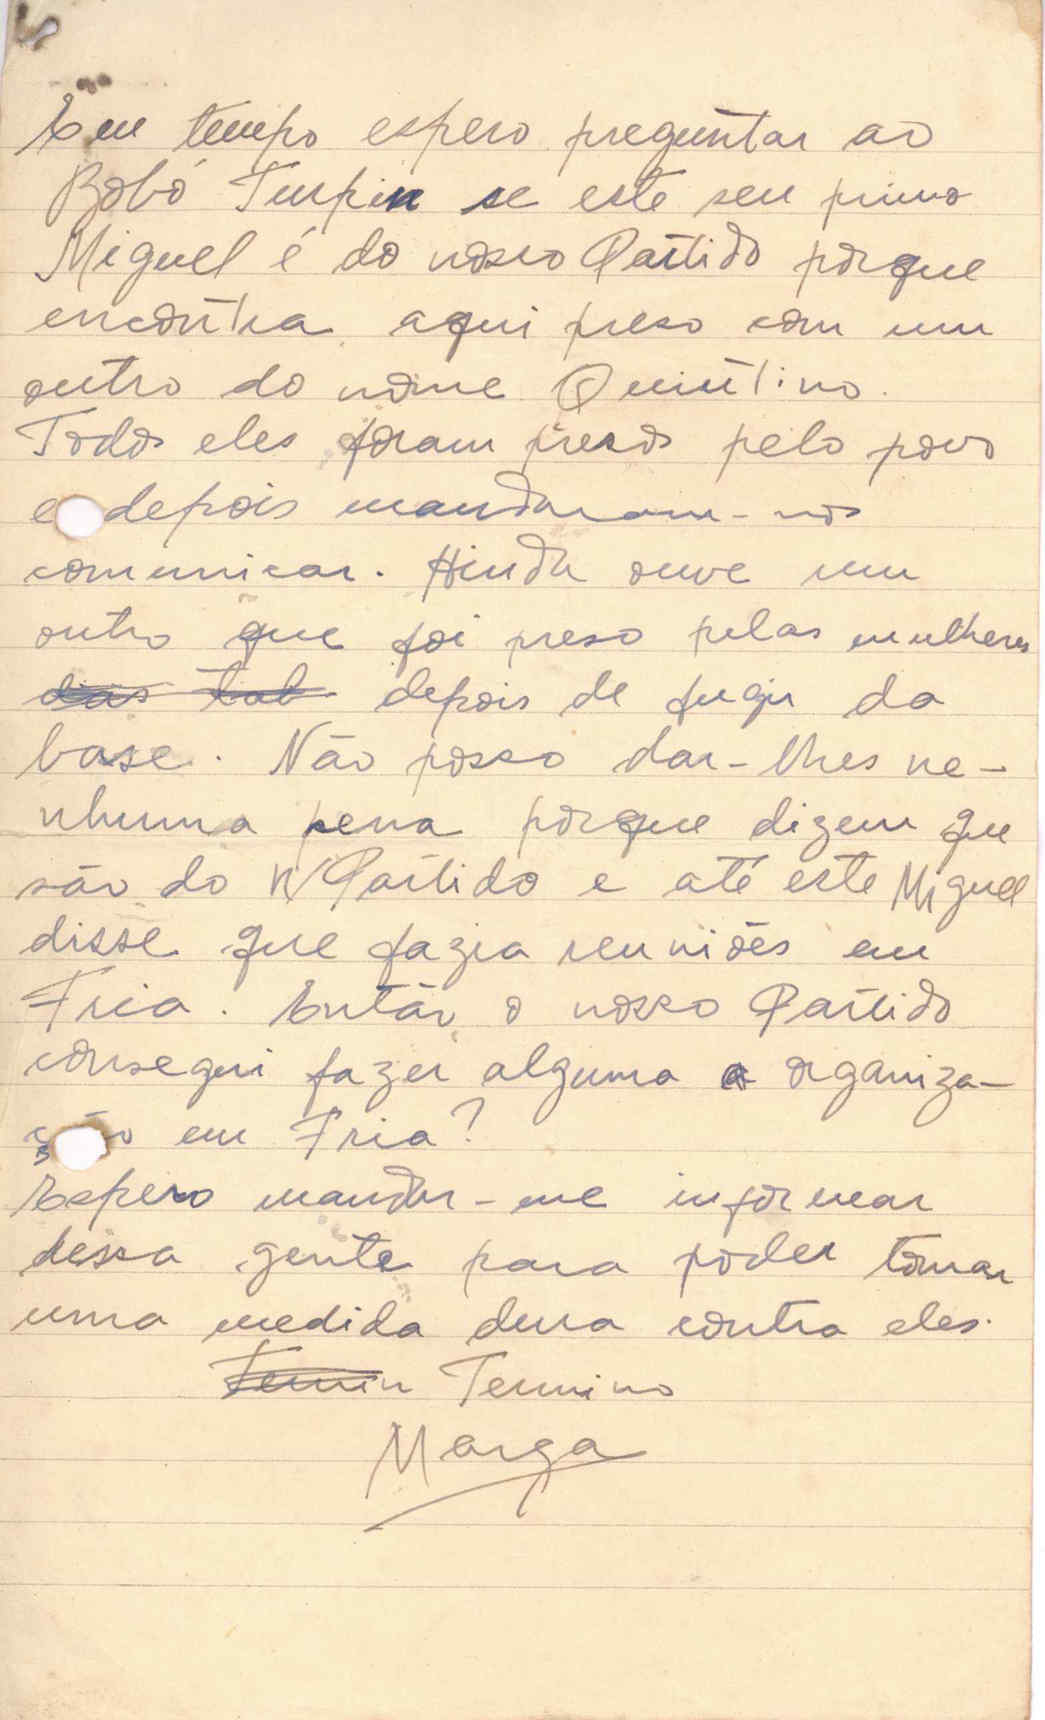 Em tempo espero preguntar ao
Bobó Turpin se este seu primo
Miguel é do nosso Partido porque
encontra aqui preso com um
outro do nome Quintino.
Todos eles foram presos pelo povo
e depois mandaram-nos
comunicar. Ainda ouve um
outro que foi preso pelas mulheres
das tab depois de fugir da
base. Não posso dar-lhes ne-
nhuma pena porque dizem que
são do N/Partido e até este Miguel
disse que fazia reuniões em
Fria. Então o nosso Partido
consegui fazer alguma a organiza-
ção em Fria?
Espero mandar-me informar
dessa gente para poder tomar
uma medida dura contra eles.
Termin Termino
Marga